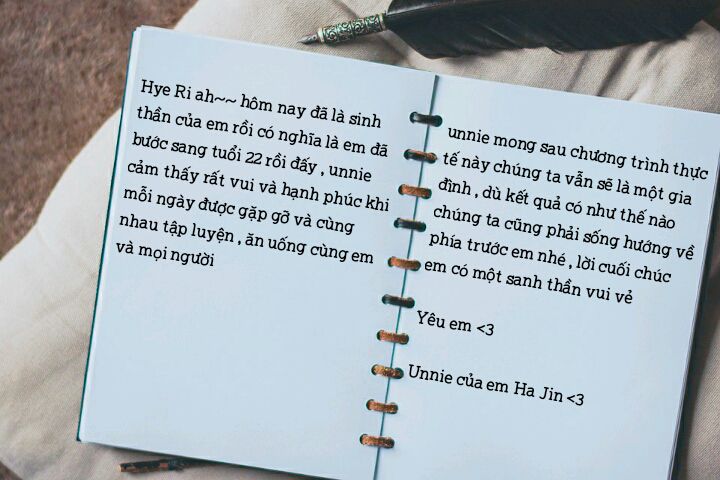 Hye Ri ah~~ hôm nay đã là sinh
thần của em rồi có nghĩa là em đã
bước sang tuổi 22 rồi đấy , unnie
cảm thấy rất vui và hạnh phúc khi
mỗi ngày được gặp gỡ và cùng
nhau tập luyện , ăn uống cùng em
và mọi người
unnie mong sau chương trình thực
tế này chúng ta vẫn sẽ là một gia
đình , dù kết quả có như thế nào
chúng ta cũng phải sống hướng về
phía trước em nhé , lời cuối chúc
em có một sanh thần vui vẻ
Yêu em <3
Unnie của em Ha Jin <3